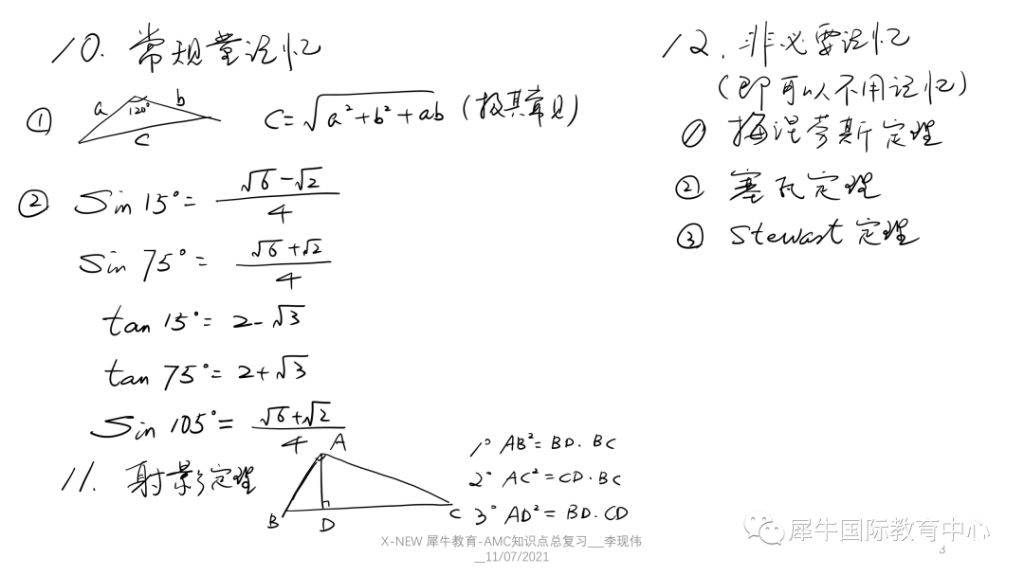 10. 常规堂记忆
① a 120° b c c=√(a²+b²+ab) (极其常见)
② Sin 15°= (√6-√2)/4
Sin 75°= (√6+√2)/4
tan 15°= 2-√3
tan 75°= 2+√3
Sin 105°= (√6+√2)/4
11. 射影定理
A B D C
1° AB²= BD· BC
2° AC²=CD·BC
3° AD²= BD·CD
12. 非必要记忆
(即可以不用记忆)
① 梅涅劳斯定理
② 塞瓦定理
③ Stewart 定理
X-NEW 犀牛教育-AMC知识点总复习__李现伟
__11/07/2021
3
犀牛国际教育中心